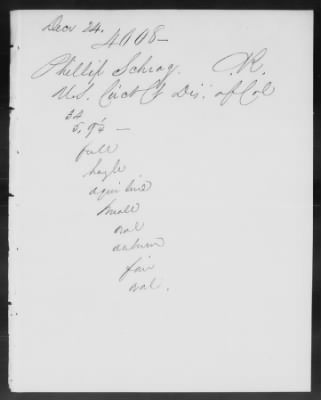 Decr 24.
4008-
Phillip Schrag. R.
U.S. Circt Ct Dis: of Col
34
5.9½ -
full
hazle
aquiline
small
oval
auburn
fair
oval.